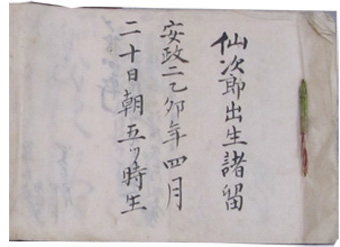 仙次郎出生諸留
安政二乙卯年四月
二十日朝五ツ時生